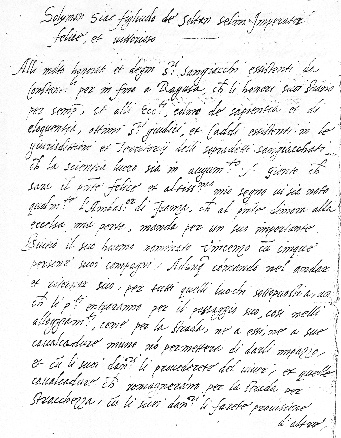 Selyman Sias figliuolo de Soltan Selim Imperator
felice, et vittorioso
Alli molto honorati et degni s.ri sangiacchi essistenti da
per in fino a Ragusa, ch li honori suoi siano
per semp, et alli Ecc.ti, de sapientia et de
eloquentia, ottimi s.ri giudici, et Caddi essistenti in le
giurisditioni et Territorij delli sopradetti sangiacchati,
ch la scientia loro sia in augum.to. Giunto ch
sarà il felice et altiss.mo mio segno vi sia noto
qualm.te l'Ambas.or di Franza, ch al pnte dimora alla
eccelsa mia porta, manda per un suo importante
il suo huomo nominato Vincenzo cū cinque
persone suoi compagni: Adunq concedo nel andar
et suo, per tutti quelli luochi
ch li p.ti per il passaggio suo, cosi nelli
allogiam.ti, come per la strada, ne a essi ne a sue
cavalcadure niuno nō permetterà di darli impazzo,
et cū li suoi dan.ri li provederete del viver, et quelle
cavalcadure ch remaneranno per la strada per
stracchezza, cū li suoi dan.ri li farete provisione
d'altre